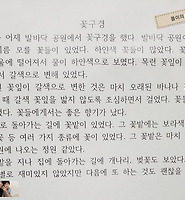 꽃구경
어제 발바닥 공원에서 꽃구경을 했다. 발바닥
이름 모를 꽃들이 있었다. 하얀색 꽃들이 많았다. 꽃
물에 떨어져서 물이 하얀색으로 보였다. 목련 꽃잎이
서 갈색으로 변해 있었다.
꽃잎이 갈색으로 변한 것은 마치 오래된 바나나
때 갈색 꽃잎을 밟지 않도록 조심하면서 걸었다. 꽃
았다. 꽃들에게서는 좋은 향기가 났다.
로 돌아가는 길에 꽃밭이 있었다. 그 꽃밭에는 보라색
꽃 등 여러 가지 종류에 꽃이 있었다. 그 꽃밭은 마치
원에 나오는 정원 같았다.
밭을 지나 집에 돌아가는 길에 개나리, 벚꽃도 보았다.
별로 재미있지 않았지만 다음에 또 하는 것도 괜찮을